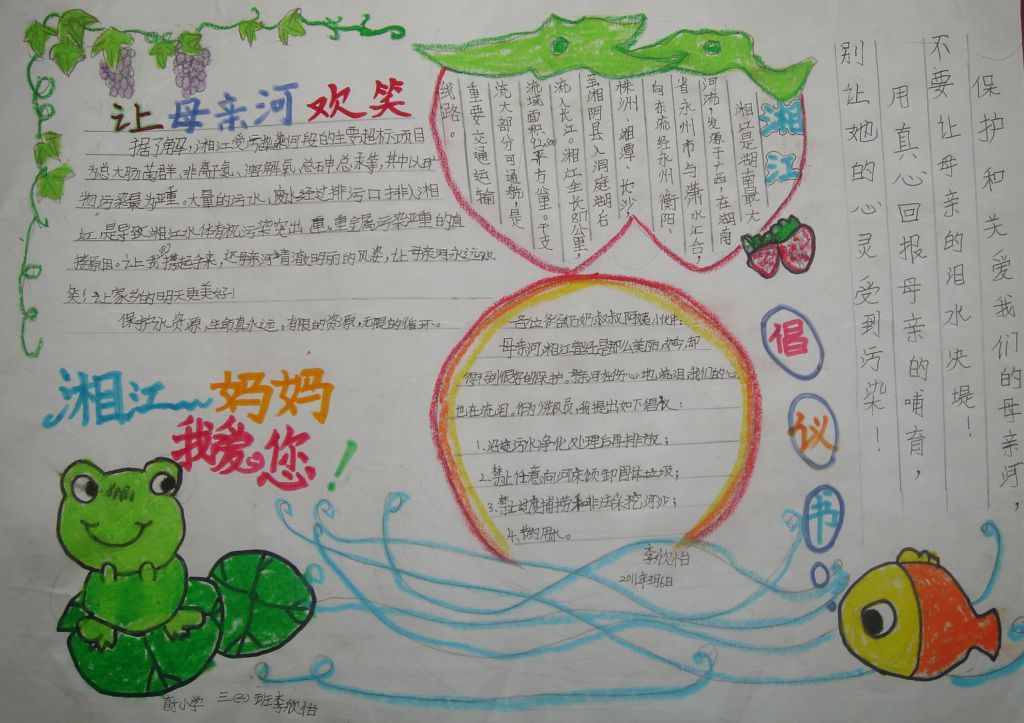 让母亲河欢笑
据了解，湘江受污染河段的主要超标项目
为总大肠菌群、非离子氨、溶解氧、总砷总汞等，其中以矿
物污染最为严重。大量的污水，废水经过排污口排入湘
江，是导致湘江水体有机污染突出 重金属污染严重的直
接原因。让我们携起手来，还母亲河清澈明丽的风姿，让母亲河永远欢
笑！让家乡的明天更美好！
保护水资源，生命真永远。有限的资源，无限的循环。
湘江
湘江是湖南最大
河流，发源于广西，在湖南
省永州市与潇水汇合，
向东流经永州、衡阳、
株洲、湘潭、长沙，
至湘阴县入洞庭湖后
流入长江。湘江全长817公里，
流域面积92300平方公里。干支
流大部分可通航，是
重要交通运输
线路。
保护和关爱我们的母亲河，
不要让母亲的泪水决堤！
用真心回报母亲的哺育，
别让她的心灵受到污染！
倡议书
各位爷爷奶奶叔叔阿姨小伙伴：
母亲河湘江曾经是那么美丽，如今却
得到很好的保护。母亲河在伤心地流泪，我们的心
也在流泪。作为少先队员，我提出如下倡议：
1.沿途污水净化处理后再排放；
2.禁止任意向河床倾卸固体垃圾；
3.禁止过度捕捞和非法采挖河沙；
4.节约用水。
李欣怡
2011年3月6日
湘江妈妈
我爱您！
小学 三(二)班李欣怡